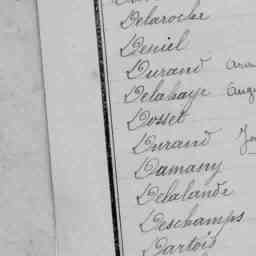 Delaroche
Deniel
Durand
Delahaye Augu
Dosset
Durand
Damany
Delalande
Deschamps
Dartois